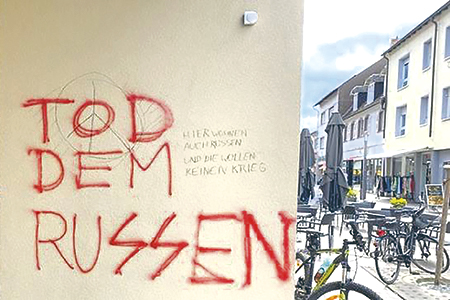 TOD
DEM
RUSSEN
HIER WOHNEN
AUCH RUSSEN
UND DIE WOLLEN
KEINEN KRIEG